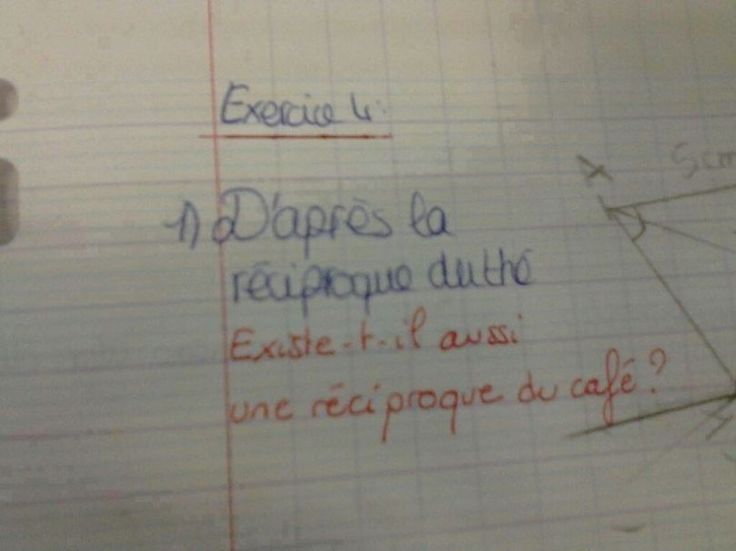 Exercice 4:
5cm
1) D'après la
réciproque du thé
Existe-t-il aussi
une réciproque du café?